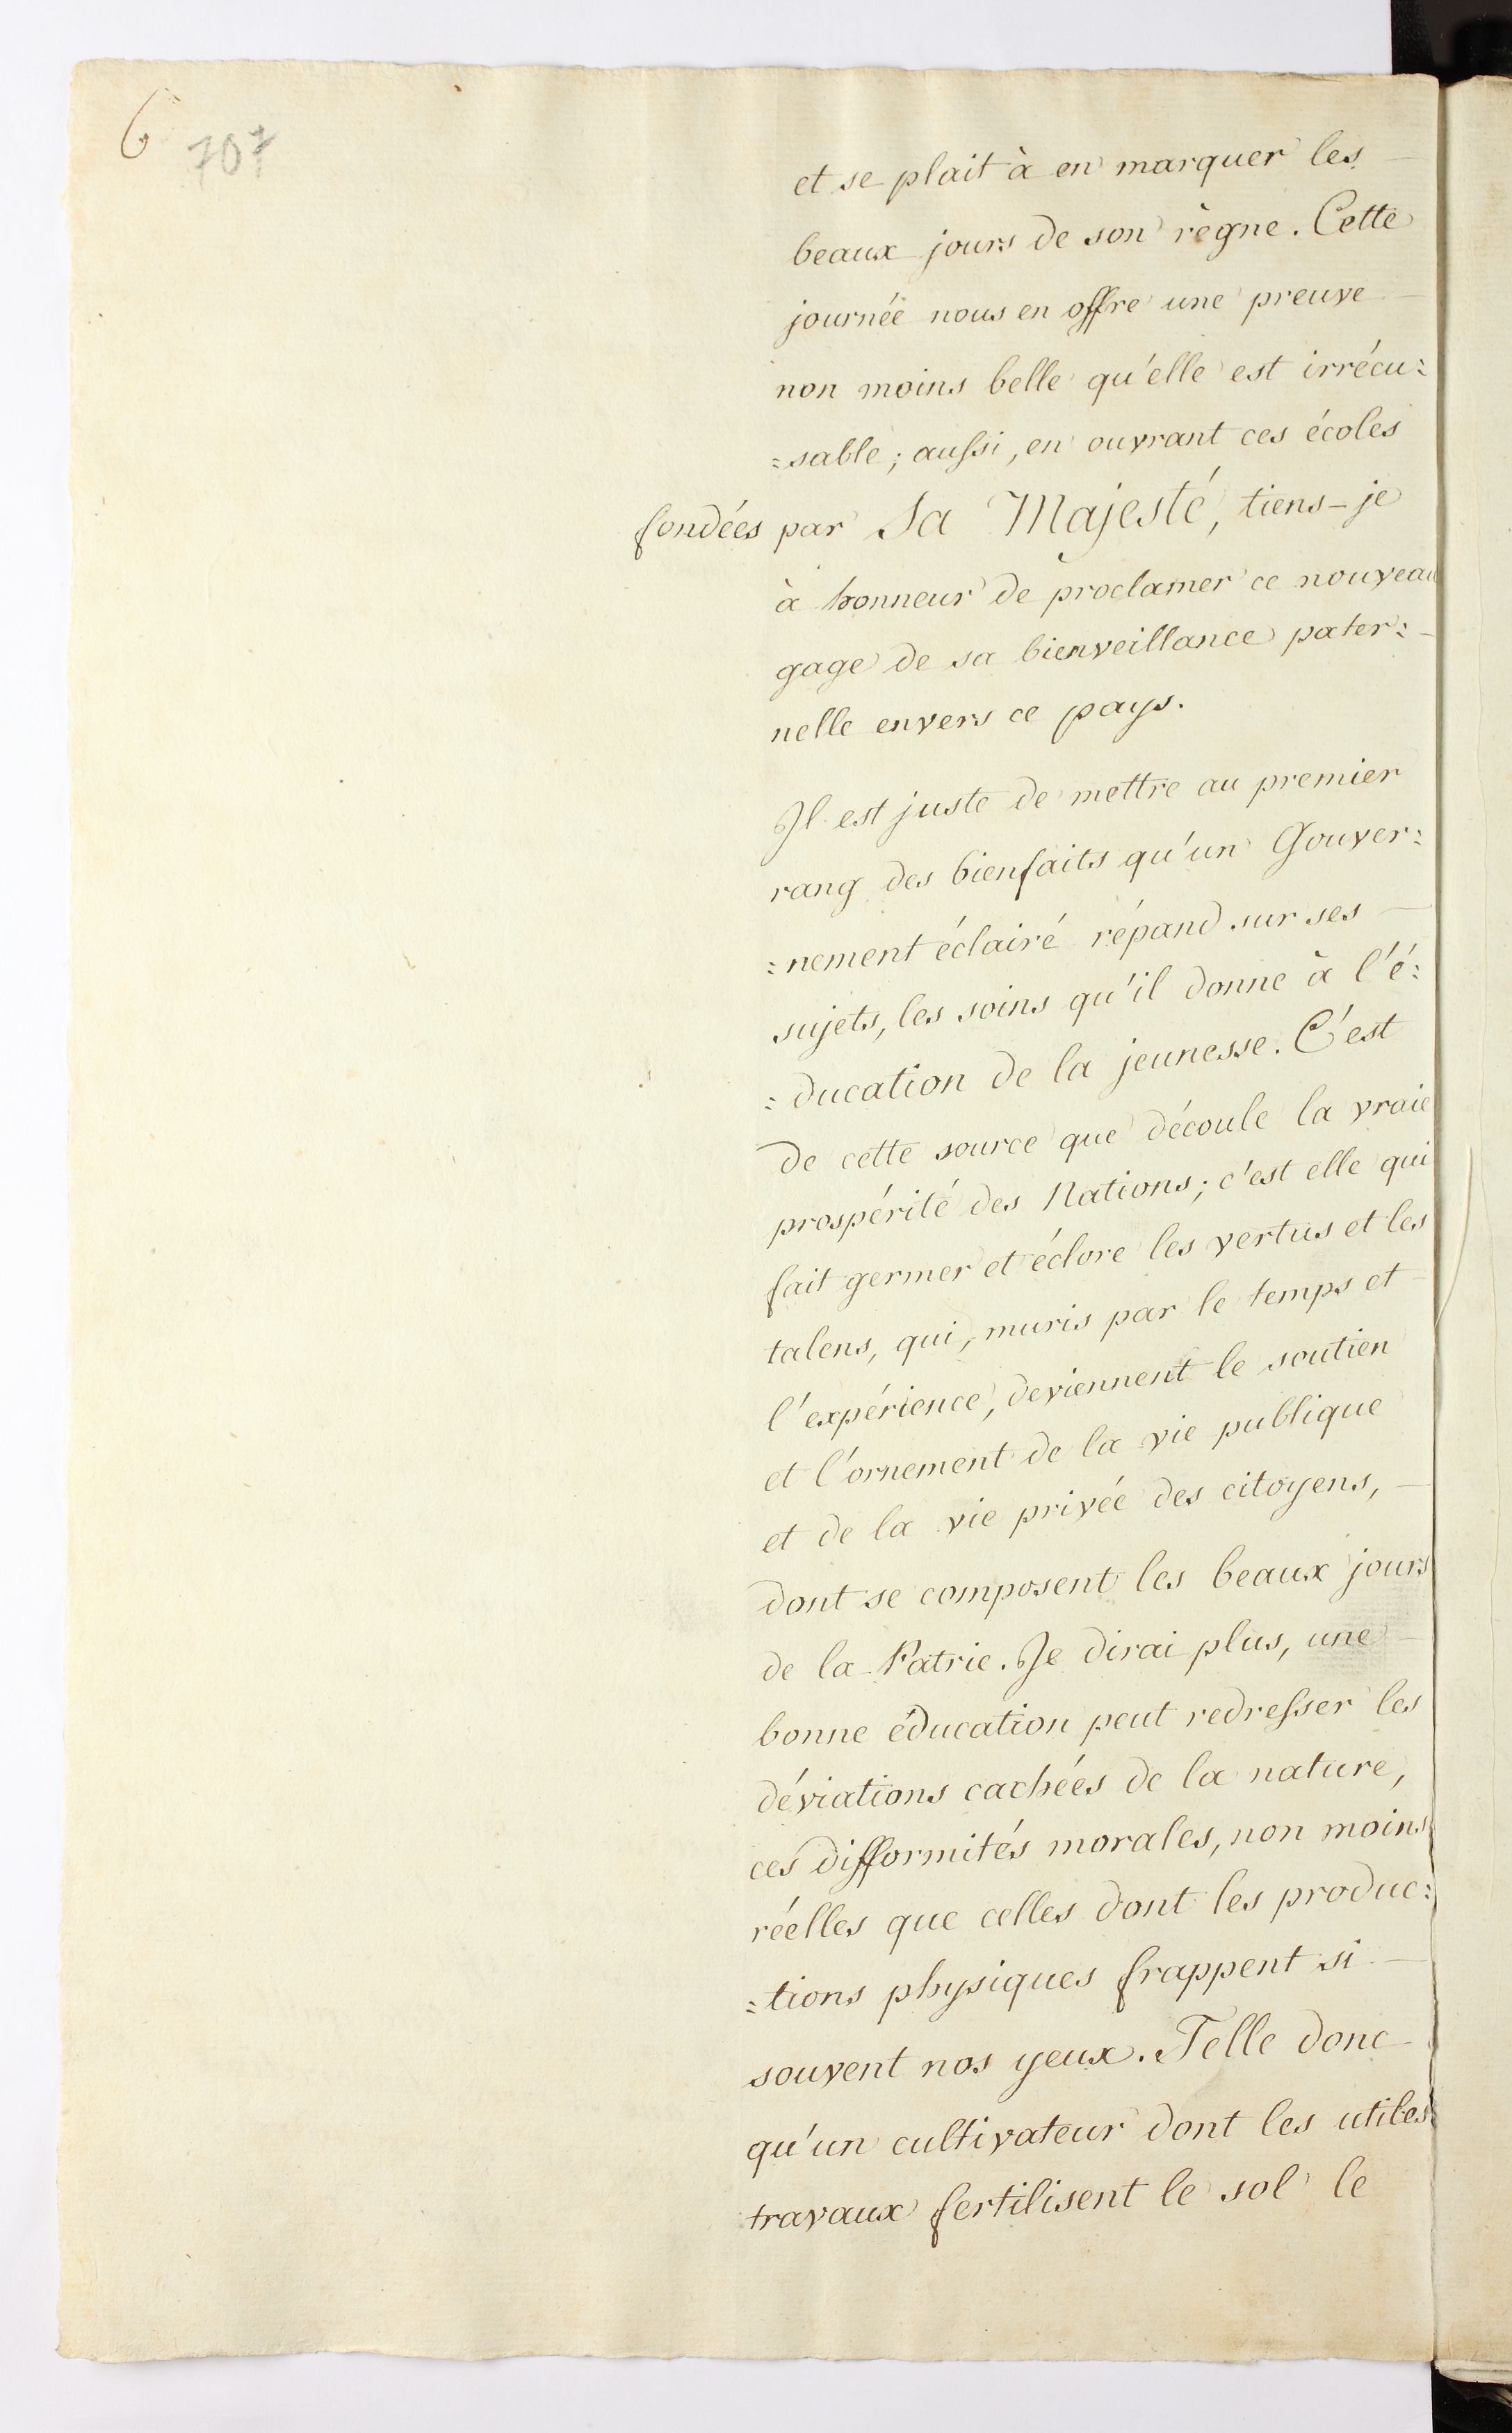 6 707
et se plait à en marquer les
beaux jours de son règne. Cette
journée nous en offre une preuve
non moins belle qu'elle est irrécu=
=sable; aussi, en ouvrant ces écoles
fondées par Sa Majesté, tiens-je
à honneur de proclamer ce nouveau
gage de sa bienveillance pater=
nelle envers ce pays.
Il est juste de mettre au premier
rang des bienfaits qu'un Gouver=
=nement éclairé répand sur ses
sujets, les soins qu'il donne à l'é=
=ducation de la jeunesse. C'est
de cette source que découle la vraie
prospérité des Nations; c'est elle qui
fait germer et éclore les vertus et les
talens, qui, muris par le temps et
l'expérience, deviennent le soutien
et l'ornement de la vie publique
et de la vie privée des citoyens,
dont se composent les beaux jours
de la Patrie. Je dirai plus, une
bonne éducation peut redresser les
déviations cachées de la nature,
ces difformités morales, non moins
réelles que celles dont les produc=
=tions physiques frappent si
souvent nos yeux. Telle donc
qu'un cultivateur dont les utiles
travaux fertilisent le sol le